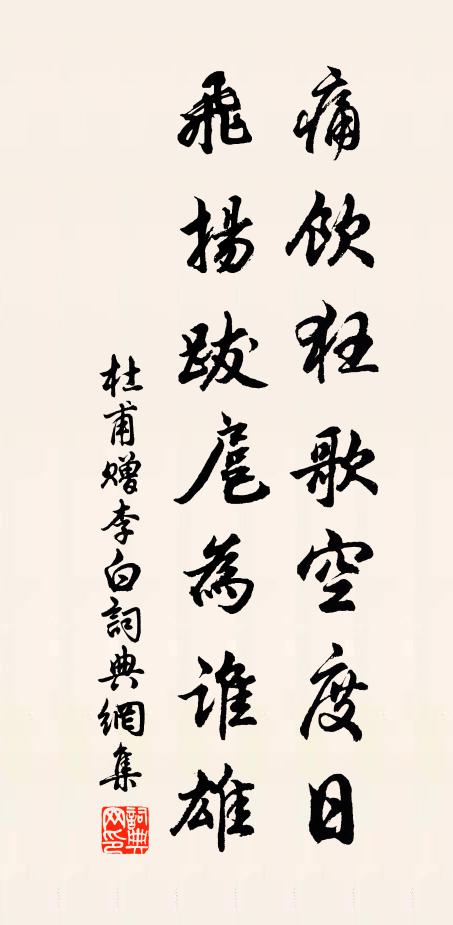 痛飲狂歌空度日
飛揚跋扈為誰雄
杜甫贈李白詞典網集
詞典網印